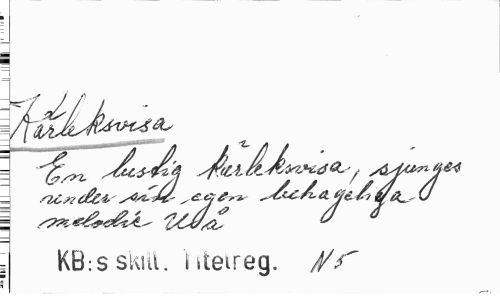 Kärleksvisa
En lustig kärleksvisa, sjunges
under sin egen behageliga
melodie U å
KB:s skill. Titelreg. N 5